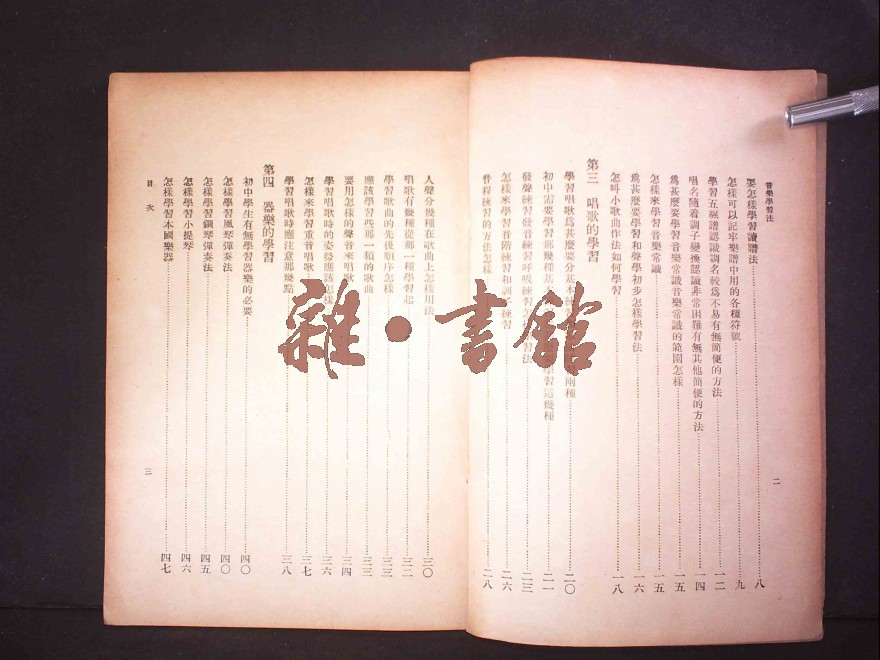 音樂學習法
要怎樣學習讀譜法……八
怎樣可以記牢樂譜中用的各種符號……九
學習五線譜認識調名較爲不易有無簡便的方法……一二
唱名隨着調子變換認識非常困難有無其他簡便的方法……一四
爲甚麼要學習音樂常識音樂常識的範圍怎樣……一五
怎樣來學習音樂常識……一五
爲甚麼要學習和聲學初步怎樣學習法……一六
怎叫小歌曲作法如何學習……一八
第三　唱歌的學習
學習唱歌爲甚麼要分基本練習……兩種……二〇
初中需要學習那幾種基本……學習這幾種……二一
發聲練習發音練習呼吸練習怎……習法……二三
怎樣來學習音階練習和調子練習……二六
音程練習的方法怎樣……二八
二
人聲分幾種在歌曲上怎樣用法……三〇
唱歌有幾種從那一種學習起……三二
學習歌曲的先後順序怎樣……三三
應該學習些那一類的歌曲……三三
要用怎樣的聲音來唱歌……三四
學習唱歌時的姿勢應該怎樣……三六
怎樣來學習重音唱歌……三七
學習唱歌時應注意那幾點……三八
第四　器樂的學習
初中學生有無學習器樂的必要……四〇
怎樣學習風琴彈奏法……四〇
怎樣學習鋼琴彈奏法……四五
怎樣學習小提琴……四六
怎樣學習本國樂器……四七
目次
三
雜·書館